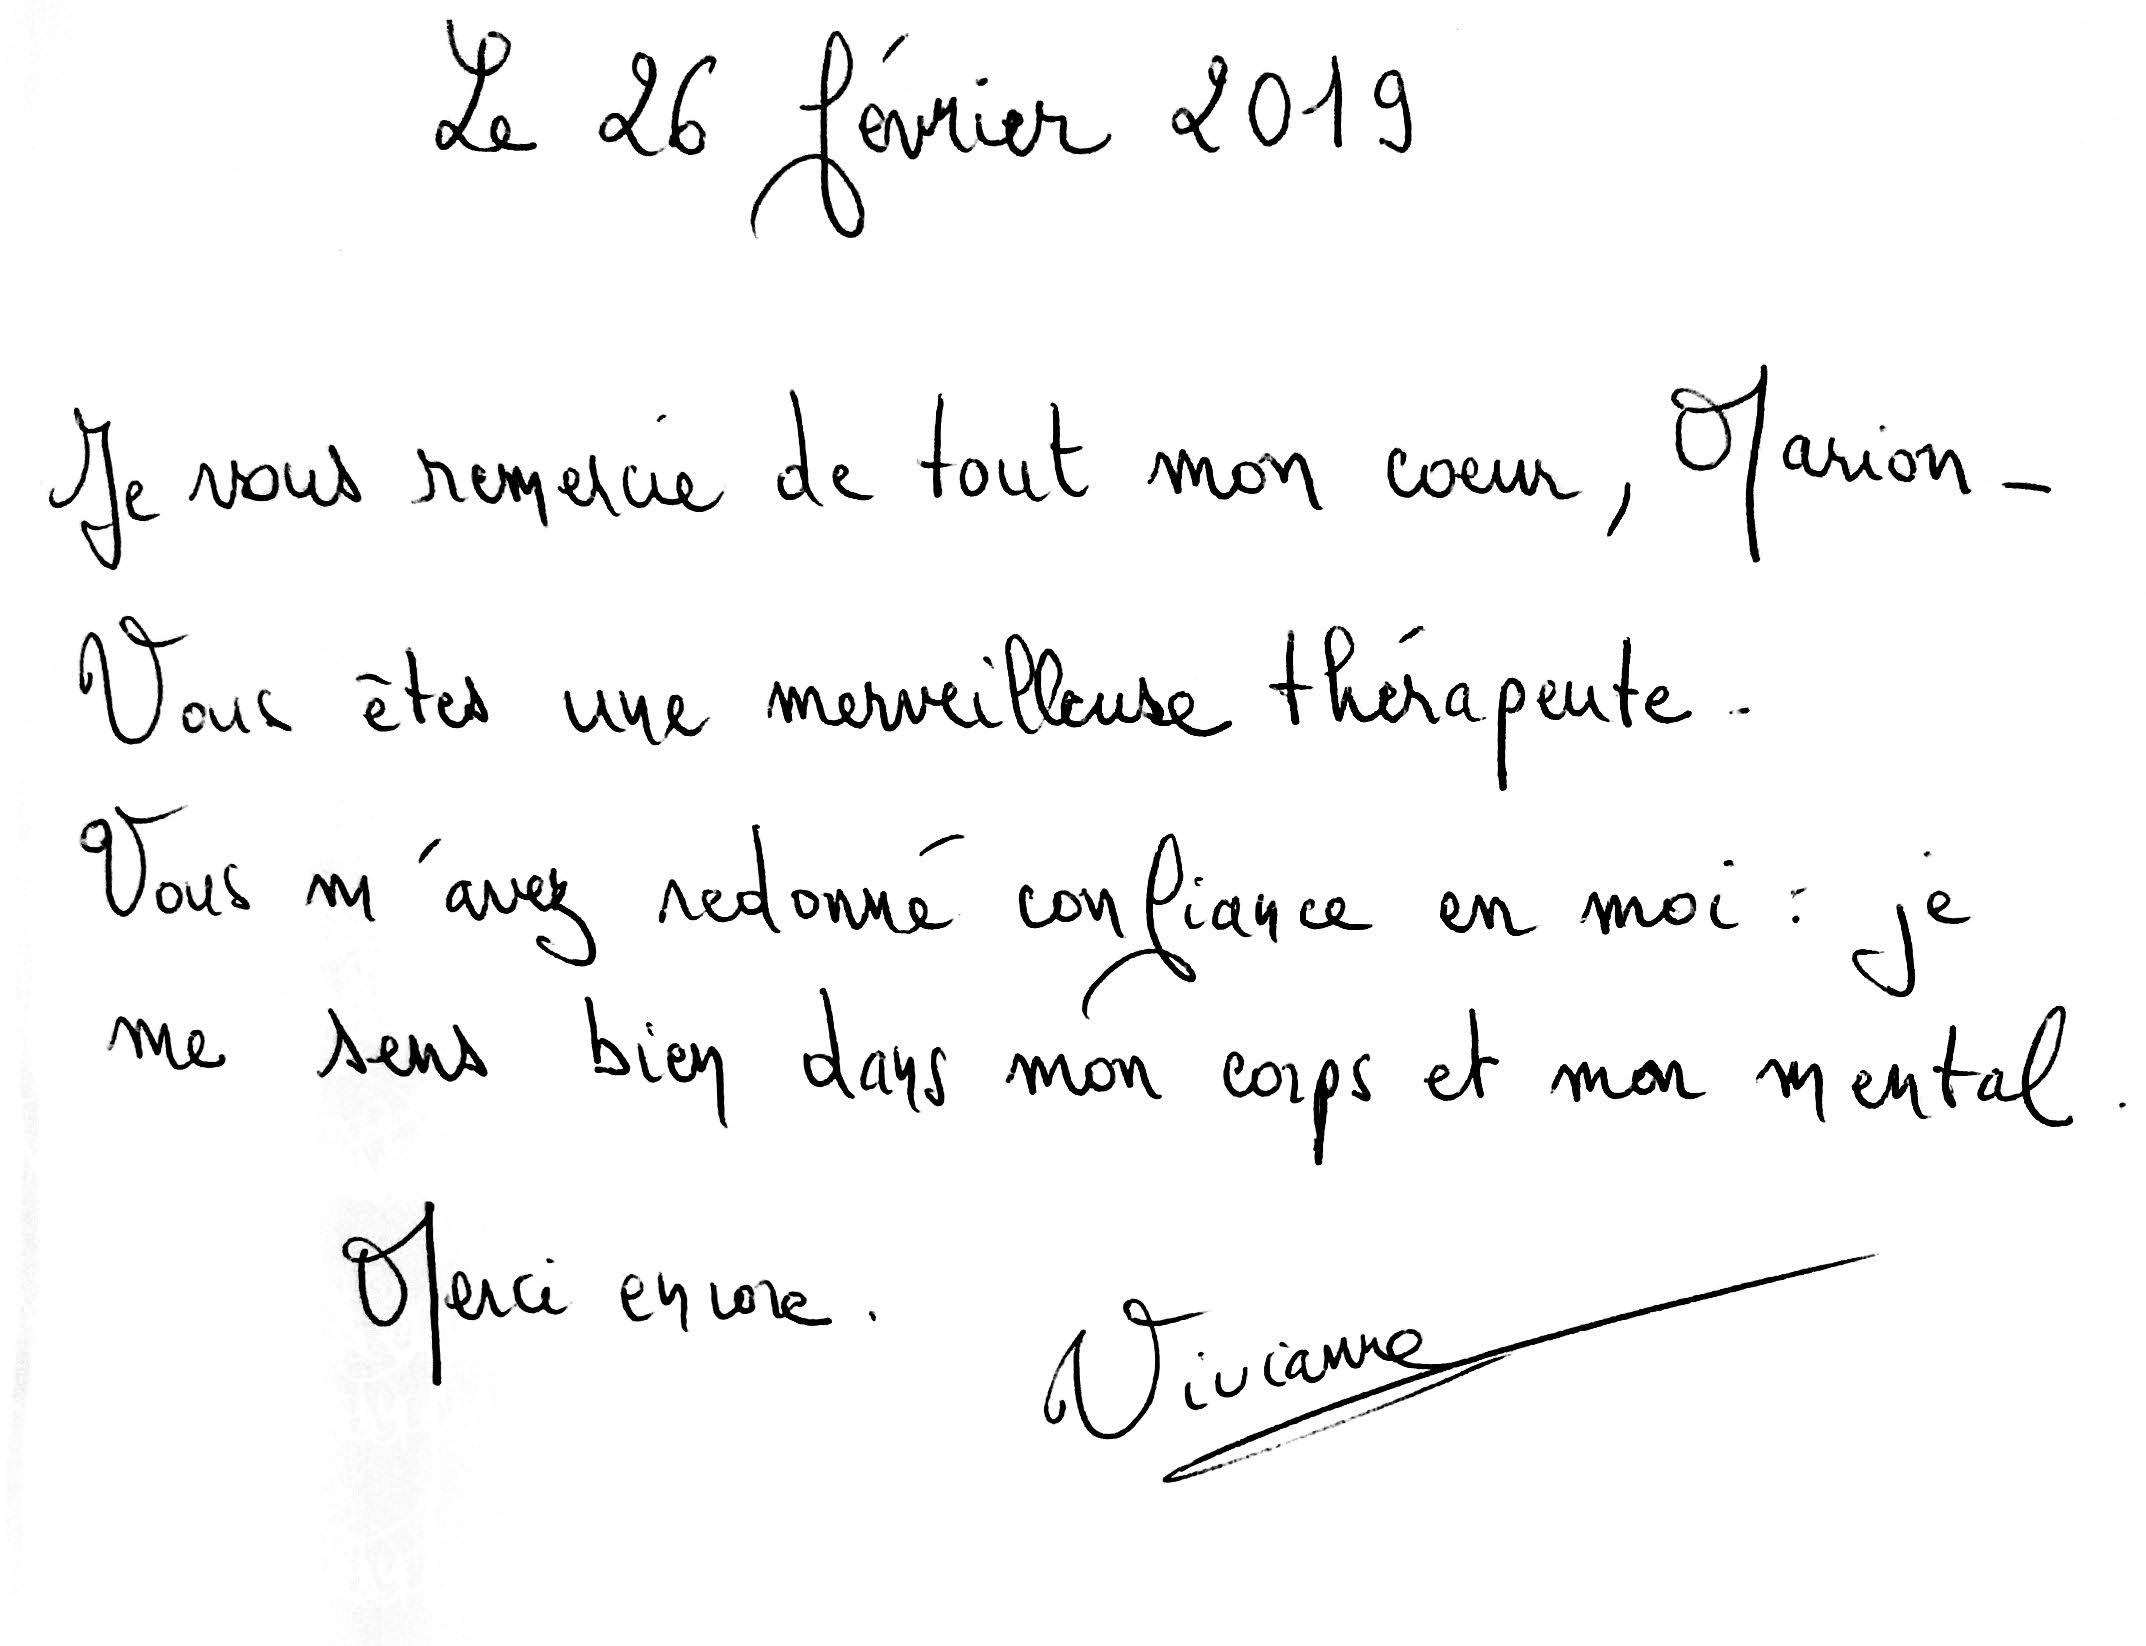 Le 26 février 2019
Je vous remercie de tout mon coeur, Marion -
Vous êtes une merveilleuse thérapeute.
Vous m'avez redonné confiance en moi : je
me sens bien dans mon corps et mon mental.
Merci encore.
Vivianne